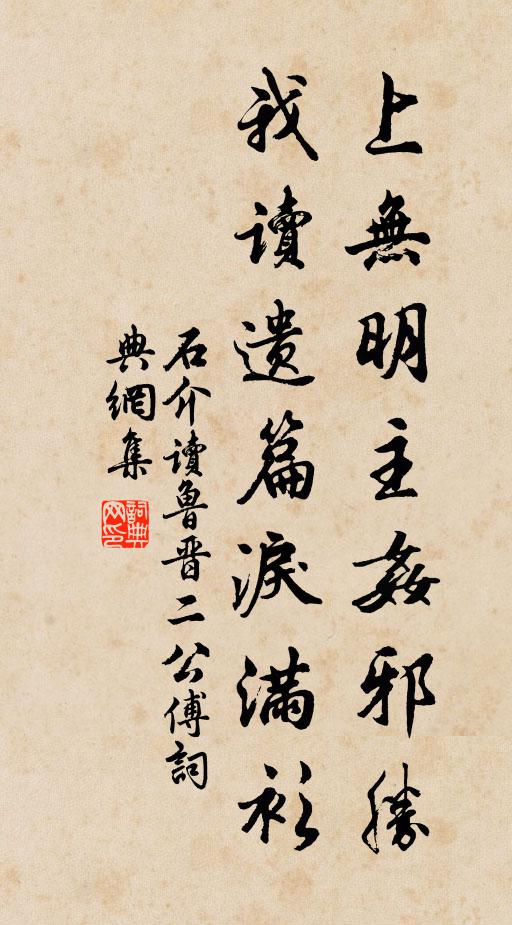 上無明主姦邪勝
我读遺篇淚滿衫
石介读魯晋二公傅詞
典網集
詞典
网印